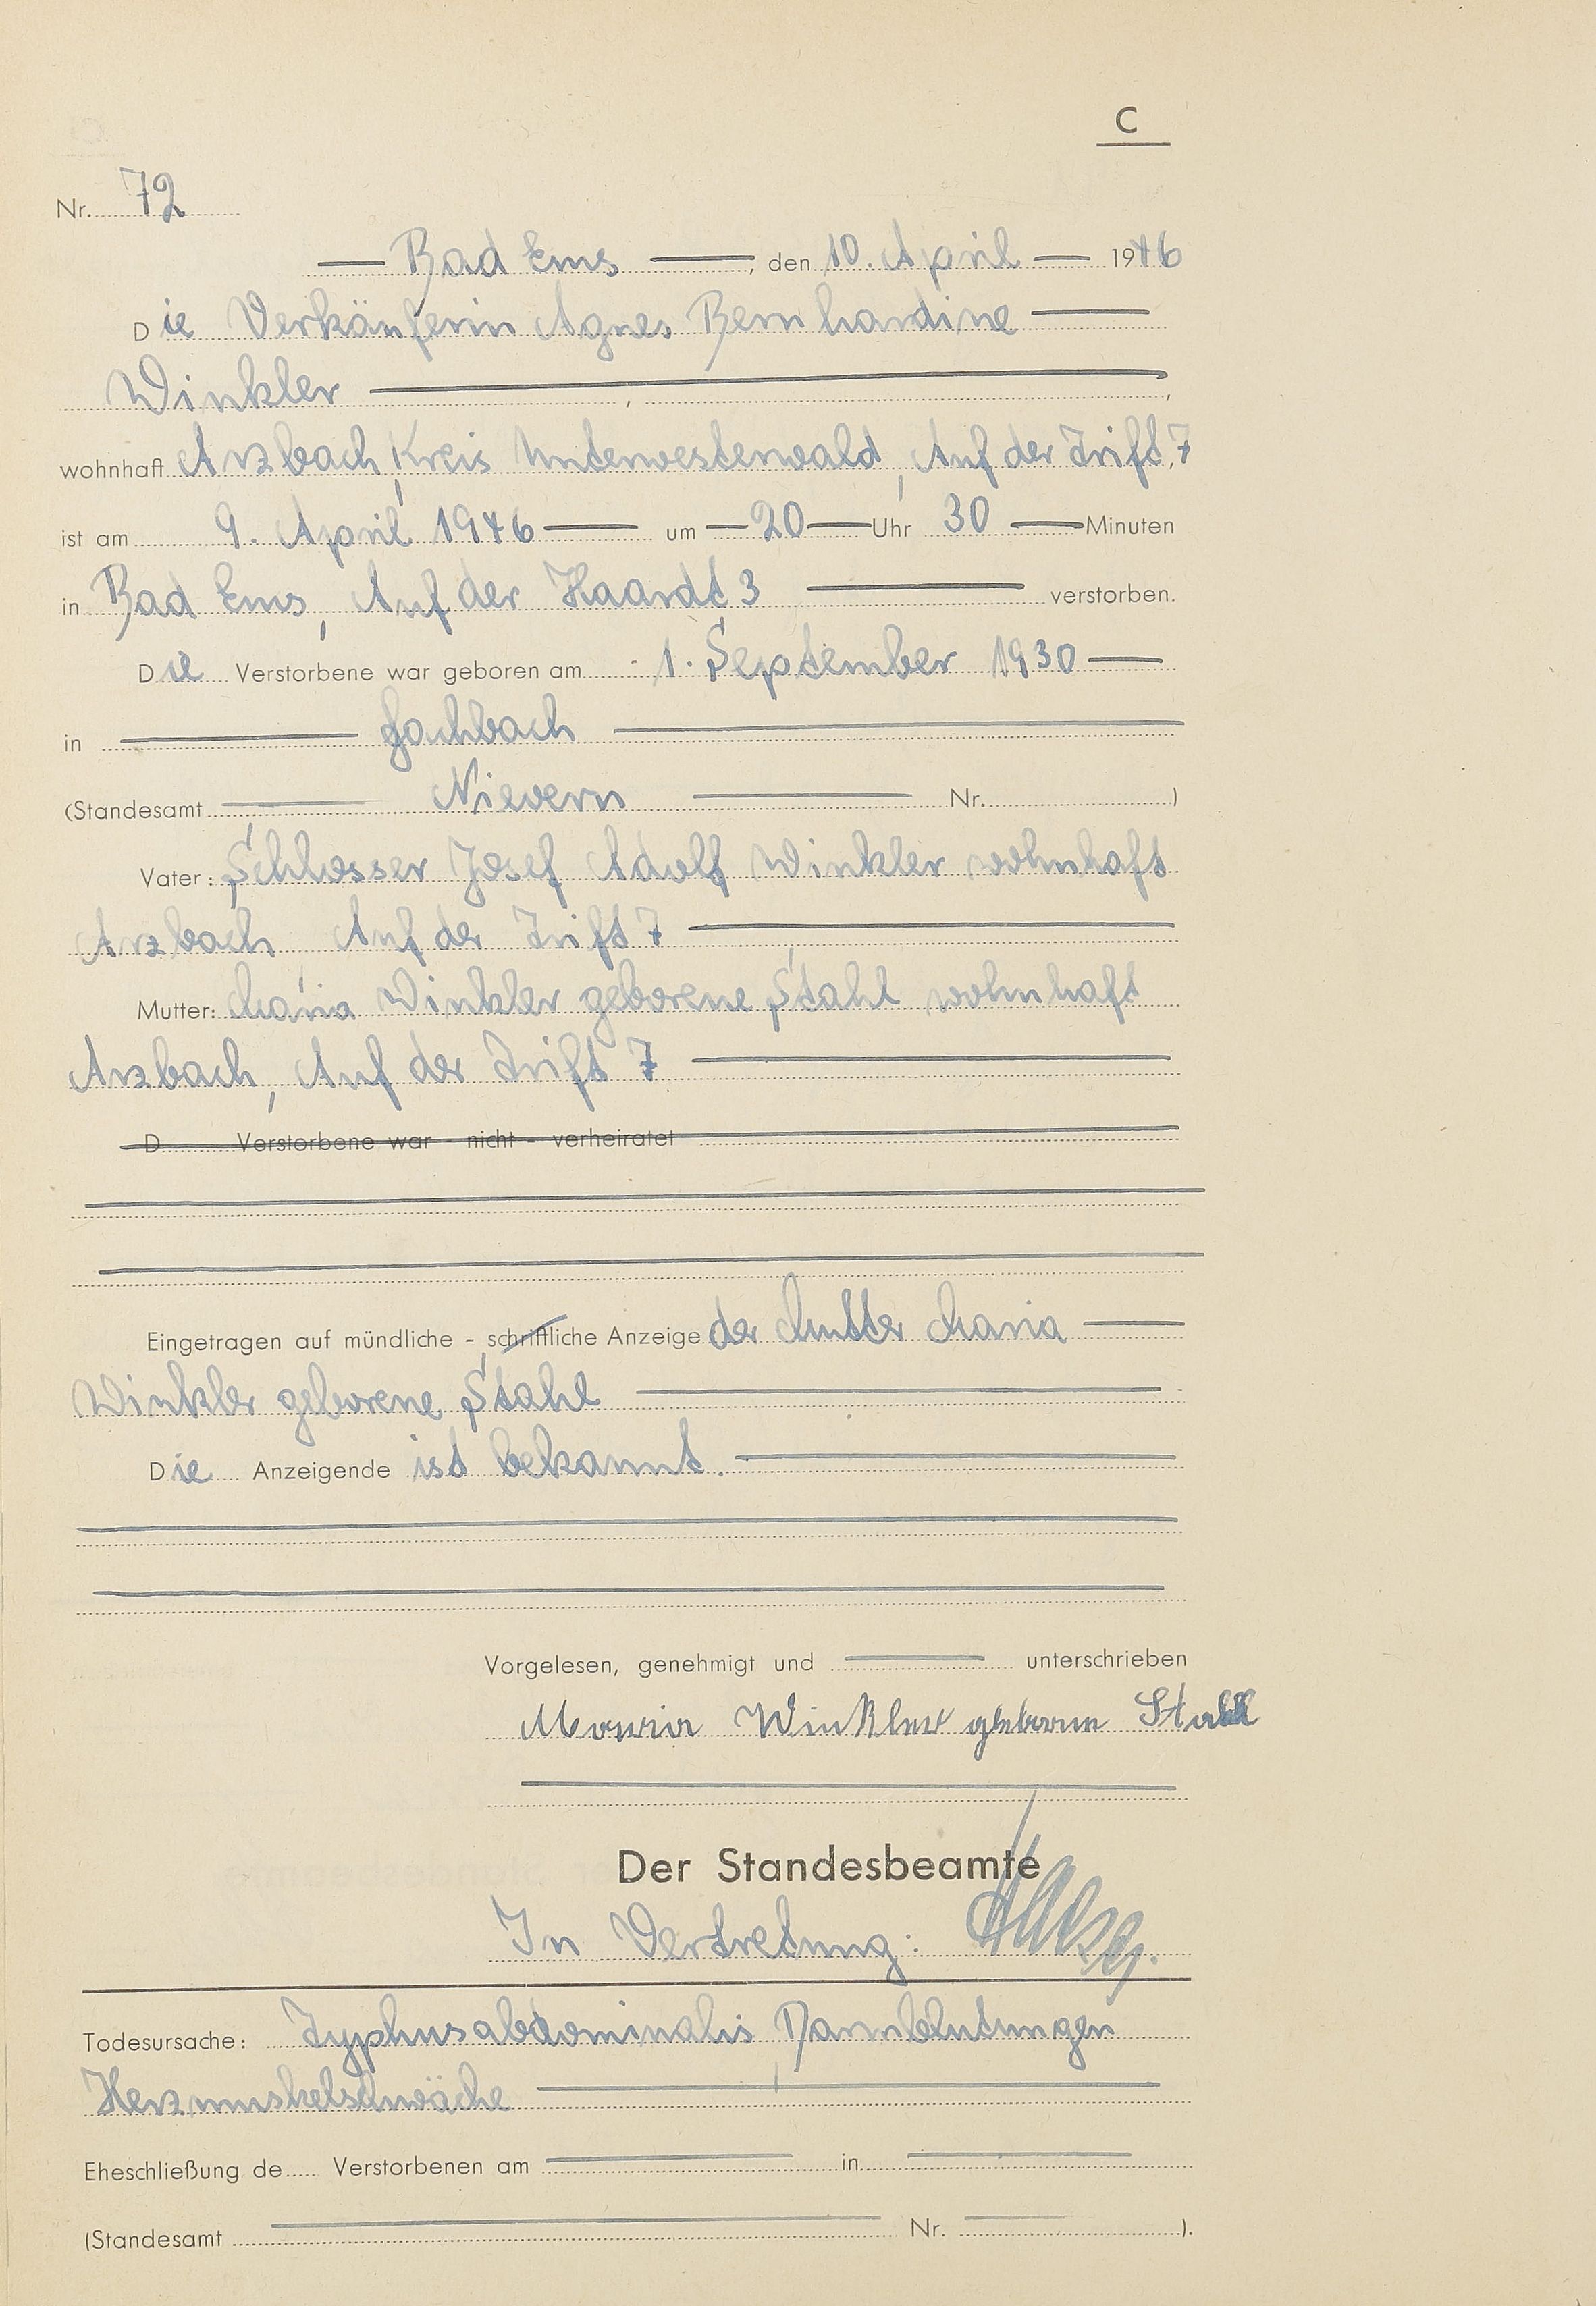 C
Nr. 72
Bad Ems, den 10. April 1946
Die Verkäuferin Agnes Bernhardine
Winkler
wohnhaft Arzbach, Kreis Unterwesterwald, Auf der Trift, 7
ist am 9. April 1946 um 20 Uhr 30 Minuten
in Bad Ems, Auf der Haardt 3 verstorben.
Die Verstorbene war geboren am 1. September 1930
in Fachbach
(Standesamt Nievern Nr. )
Vater: Schlosser Josef Adolf Winkler wohnhaft
Arzbach Auf der Trift 7
Mutter: Maria Winkler geborene Stahl wohnhaft
Arzbach, Auf der Trift 7
D Verstorbene war - nicht - verheiratet
Eingetragen auf mündliche - schriftliche Anzeige der Mutter Maria
Winkler geborene Stahl
Die Anzeigende ist bekannt.
Vorgelesen, genehmigt und unterschrieben
Maria Winkler geborene Stahl
Der Standesbeamte
In Vertretung:
Todesursache: Typhus abdominalis, Darmblutungen
Herzmuskelschwäche
Eheschließung de Verstorbenen am in
(Standesamt Nr. ).